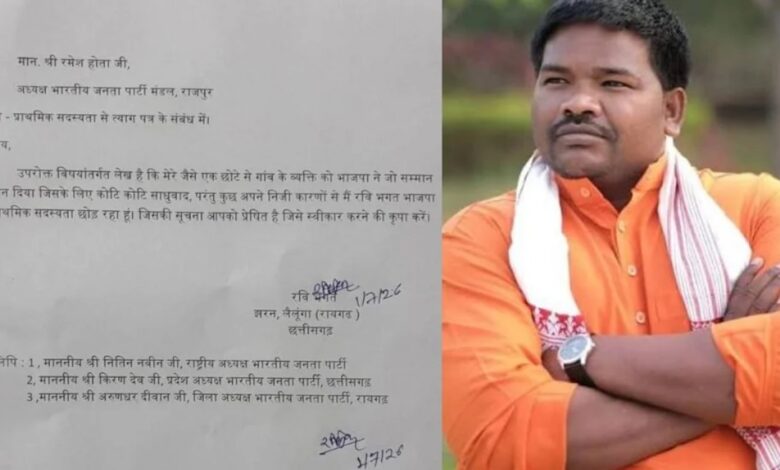 मान. श्री रमेश होता जी,
अध्यक्ष भारतीय जनता पार्टी मंडल, राजपुर
- प्राथमिक सदस्यता से त्याग पत्र के संबंध में।
उपरोक्त विषयांतर्गत लेख है कि मेरे जैसे एक छोटे से गांव के व्यक्ति को भाजपा ने जो सम्मान
दिया जिसके लिए कोटि कोटि साधुवाद, परंतु कुछ अपने निजी कारणों से मैं रवि भगत भाजपा
सदस्यता छोड़ रहा हूं। जिसकी सूचना आपको प्रेषित है जिसे स्वीकार करने की कृपा करें।
रवि भगत 1/7/26
झरन, लैलूंगा (रायगढ़)
छत्तीसगढ़
1, माननीय श्री नितिन नवीन जी, राष्ट्रीय अध्यक्ष भारतीय जनता पार्टी
2, माननीय श्री किरण देव जी, प्रदेश अध्यक्ष भारतीय जनता पार्टी, छत्तीसगढ़
3,माननीय श्री अरुणधर दीवान जी, जिला अध्यक्ष भारतीय जनता पार्टी, रायगढ़
1/7/26